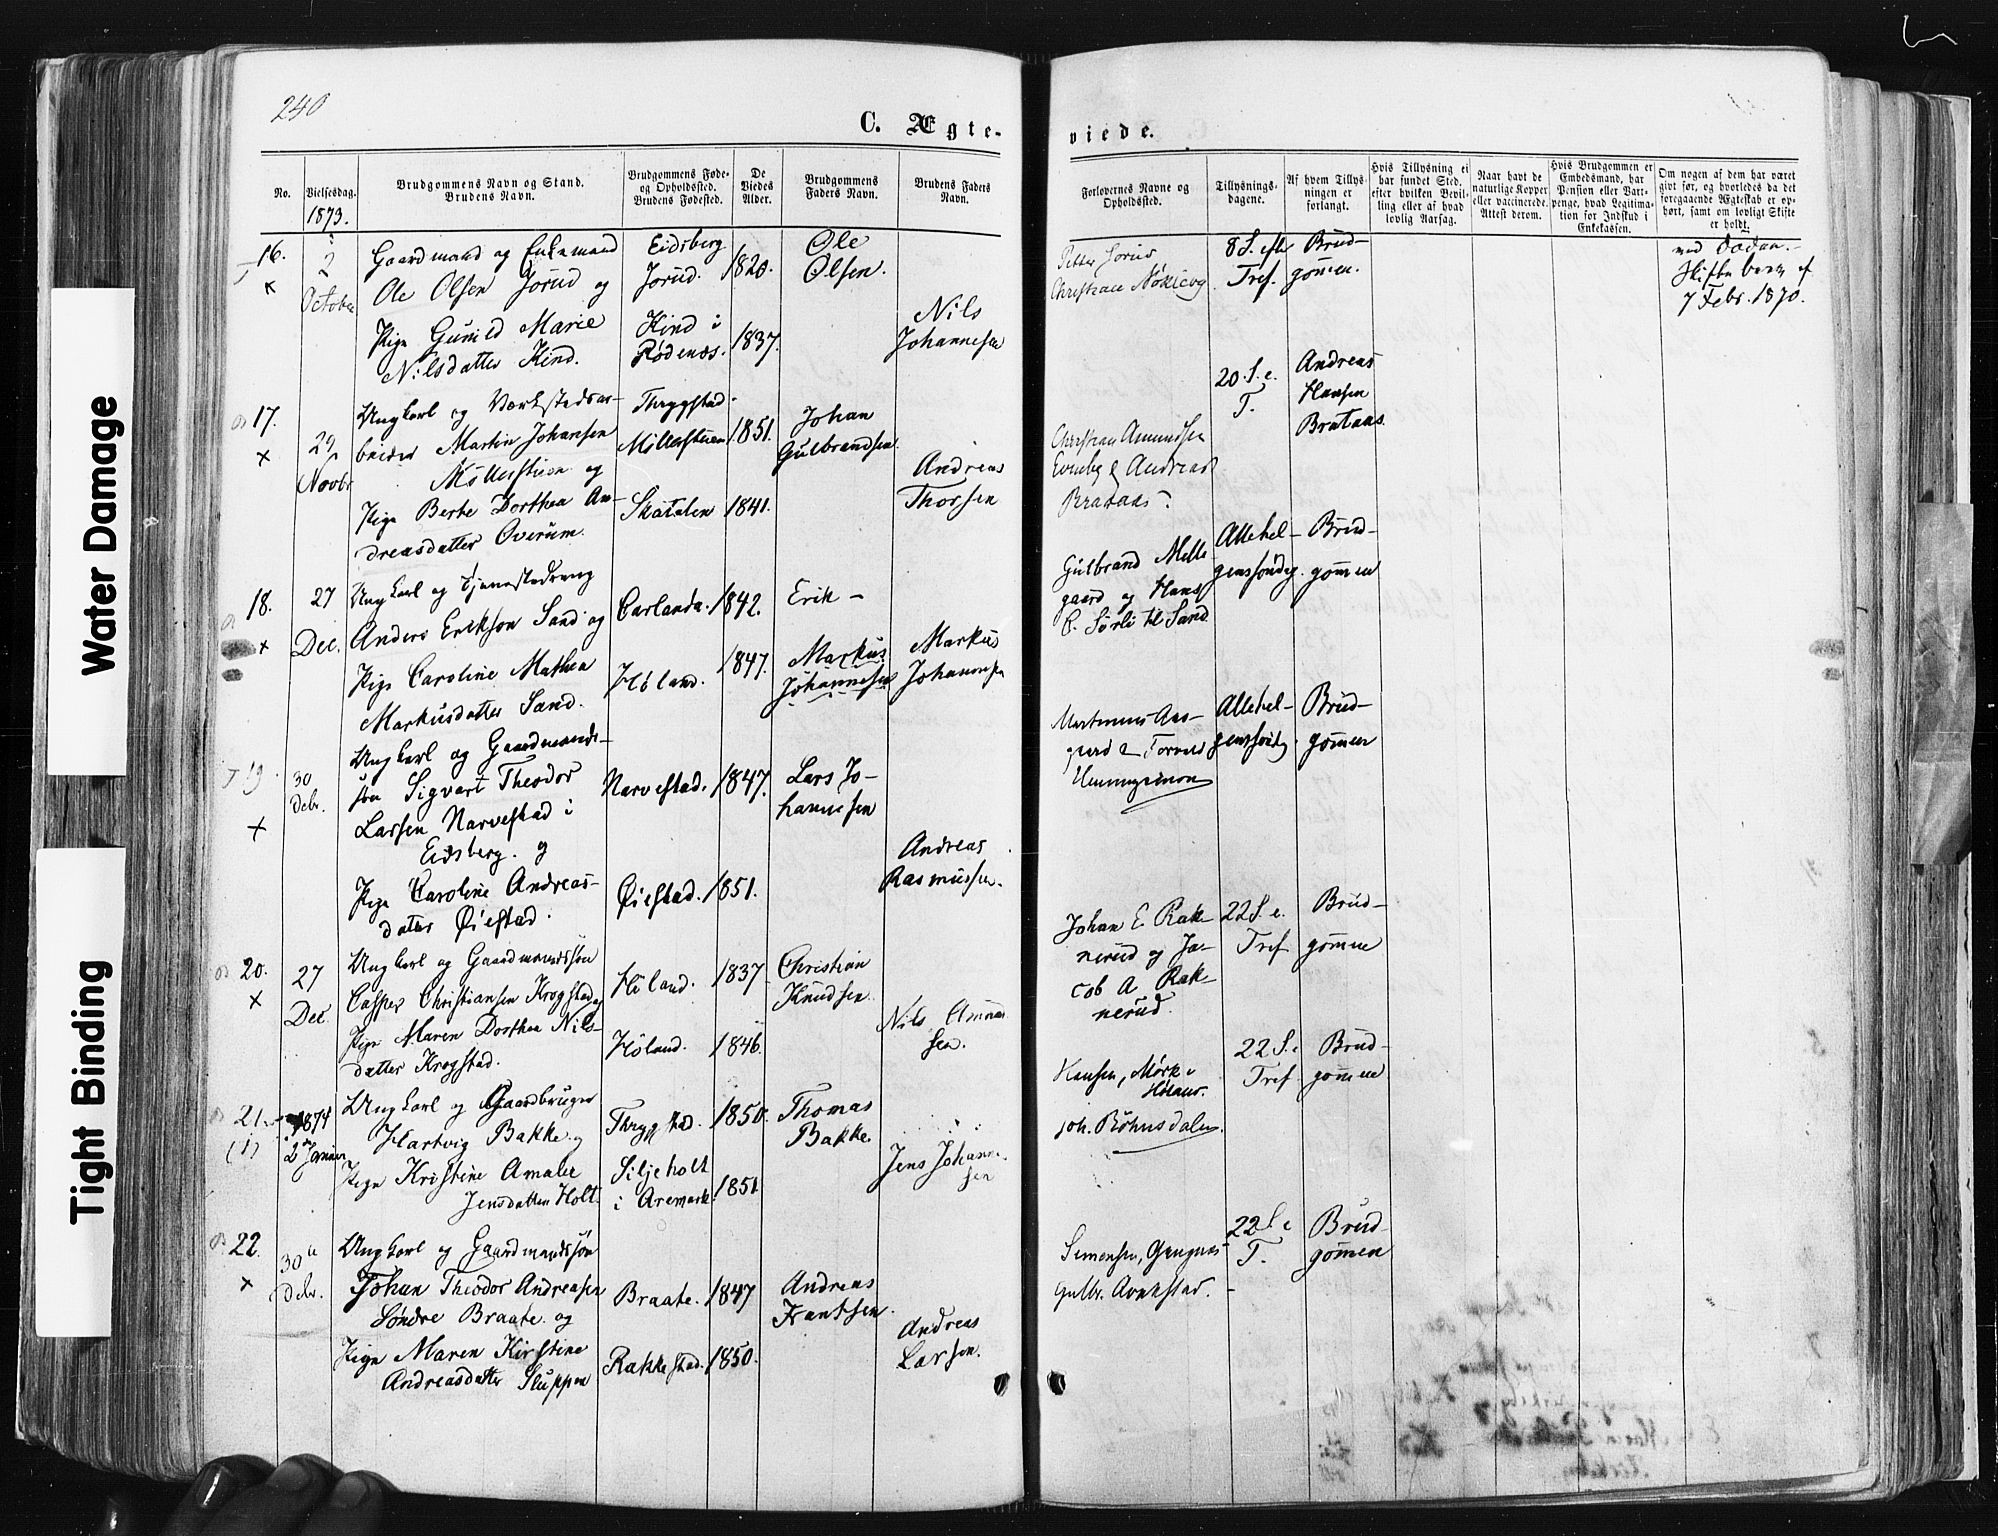 240
C. Ægte-
viede.
No.
Vielsesdag.
1873.
Brudgommens Navn og Stand.
Brudens Navn.
Brudgommens Føde-
og Opholdssted.
Brudens Fødested.
De
Viedes
Alder.
Brudgommens
Faders Navn.
Brudens Faders
Navn.
Forlovernes Navne og
Opholdssted.
Tillysnings-
dagene.
Af hvem Tillys-
ningen er
forlangt.
Hvis Tillysning ei
har fundet Sted,
efter hvilken Bevil-
ling eller af hvad
lovlig Aarsag.
Naar havt de
naturlige Kopper
eller vaccinerede.
Attest derom.
Hvis Brudgommen er
Embedsmand, har
Pension eller Vart-
penge, hvad Legitima-
tion for Indskud i
Enkekassen.
Om nogen af dem har været
givt før, og hvorledes da det
foregaaende Ægteskab er op-
hørt, samt om lovligt Skifte
er holdt.
16.
2
October
Gaardmand og Enkemand
Ole Olsen Jorud og
Pige Gunild Marie
Nilsdatter Kind.
Eidsberg
Jorud.
Kind i
Rødenæs.
1820.
1837.
Ole
Olsen.
Nils
Johannesen
Petter Jorud
8 S. efter
Tref.
Brud-
gommen.
ved Døden.
7 Febr. 1870.
17.
29
Novbr
Ungkarl og Værkstedsar-
beider Martin Johansen
Møllerstuen og
Pige Berte Dorthea An-
dreasdatter Overum.
Thrygstad.
Møllerstuen
Skatalen
1851.
1841.
Johan
Gulbrandsen
Andreas
Thorsen
Christian Amundsen
& Andreas
Brataas.
20. S. e.
T.
Andreas
Hansen
Brataas.
18.
27
Dec.
Ungkarl og Tjenestedreng
Anders Erikson Sand og
Pige Caroline Mathea
Markusdatter Sand.
Carlanda.
Høland.
1842.
1847.
Erik -
Markus
Johannesen
Markus
Johannesen
Gulbrand Melle-
gaard og Hans
C. Sørli til Sand
Allehel-
genssøndag.
Brud-
gommen
19.
30
Debr.
Ungkarl og Gaardmands-
søn Sigvart Theodor
Larsen Narvestad i
Eidsberg. og
Pige Caroline Andreas-
datter Øiestad.
Narvestad.
Øiestad.
1847.
1851.
Lars Jo-
hannesen
Andreas
Rasmussen.
Martinius Aas-
gaard & Torvald
Hemmingsmoen
Allehel-
genssøndag.
Brud-
gommen
20.
27
Dec
Ungkarl og Gaardmandssøn
Casper Christiansen Krogstad og
Pige Maren Dorthea Nils-
datter Krogstad.
Høland.
Høland.
1837
1846.
Christian
Knudsen.
Nils
sen.
Johan E. Rak-
nerud og Ja-
cob A. Rak-
nerud.
22 S. e.
Tref.
Brud-
gommen
21.
(1)
1874
2den Januar
Ungkarl og Gaardbruger
Hartvig Bakke og
Pige Kristine Amalie
Jensdatter Holt.
Thrygstad.
Siljeholt
i Aremark.
1850.
1851
Thomas
Bakke.
Jens Johanne-
sen
Hansen, Mørk i
Høland.
Joh. Böhnsdalen.
22 S. e
Tref
Brud-
gommen
22.
30
Debr.
Ungkarl og Gaardmandssøn
Johan Theodor Andreasen
Søndre Braate. og
Pige Maren Kirstine
Andreasdatter Sluppen
Braate.
Rakkestad.
1847
1850.
Andreas
Frantsen.
Andreas
Larsen.
22 S. e
T.
Brud-
gommen
Water Damage
Tight Binding